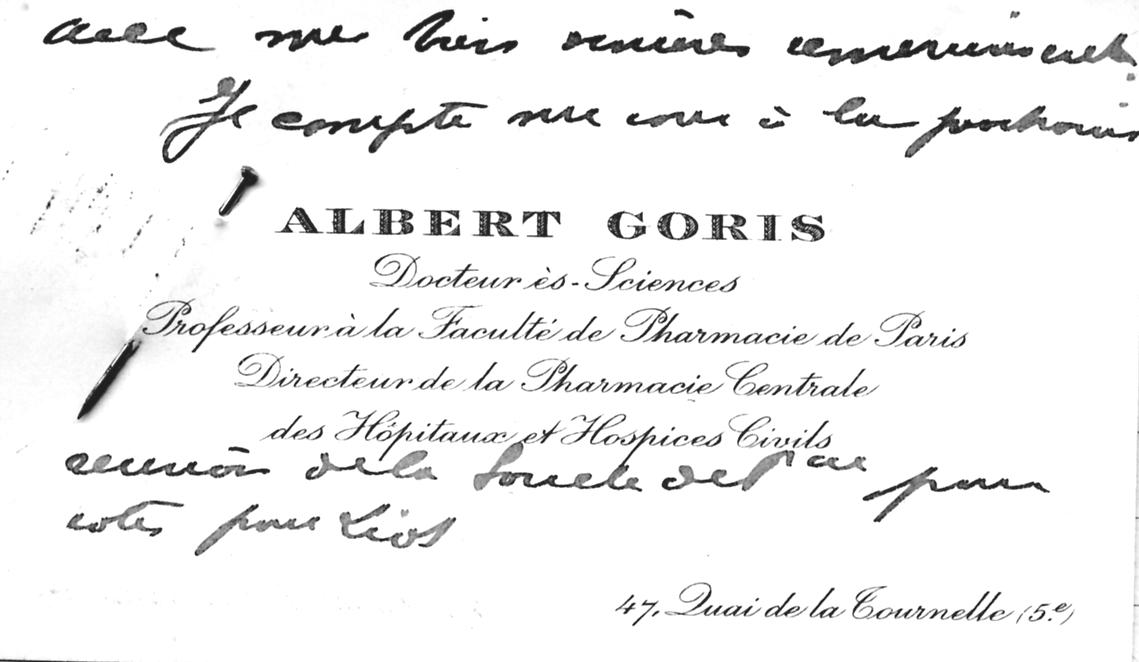 avec mes biens sincères remerciements.
Je compte sur vous à la prochaine
ALBERT GORIS
Docteur ès-Sciences
Professeur à la Faculté de Pharmacie de Paris
Directeur de la Pharmacie Centrale
des Hôpitaux et Hospices Civils
réunion de la Société de Pcie pour
voter pour
47, Quai de la Tournelle (5.e)